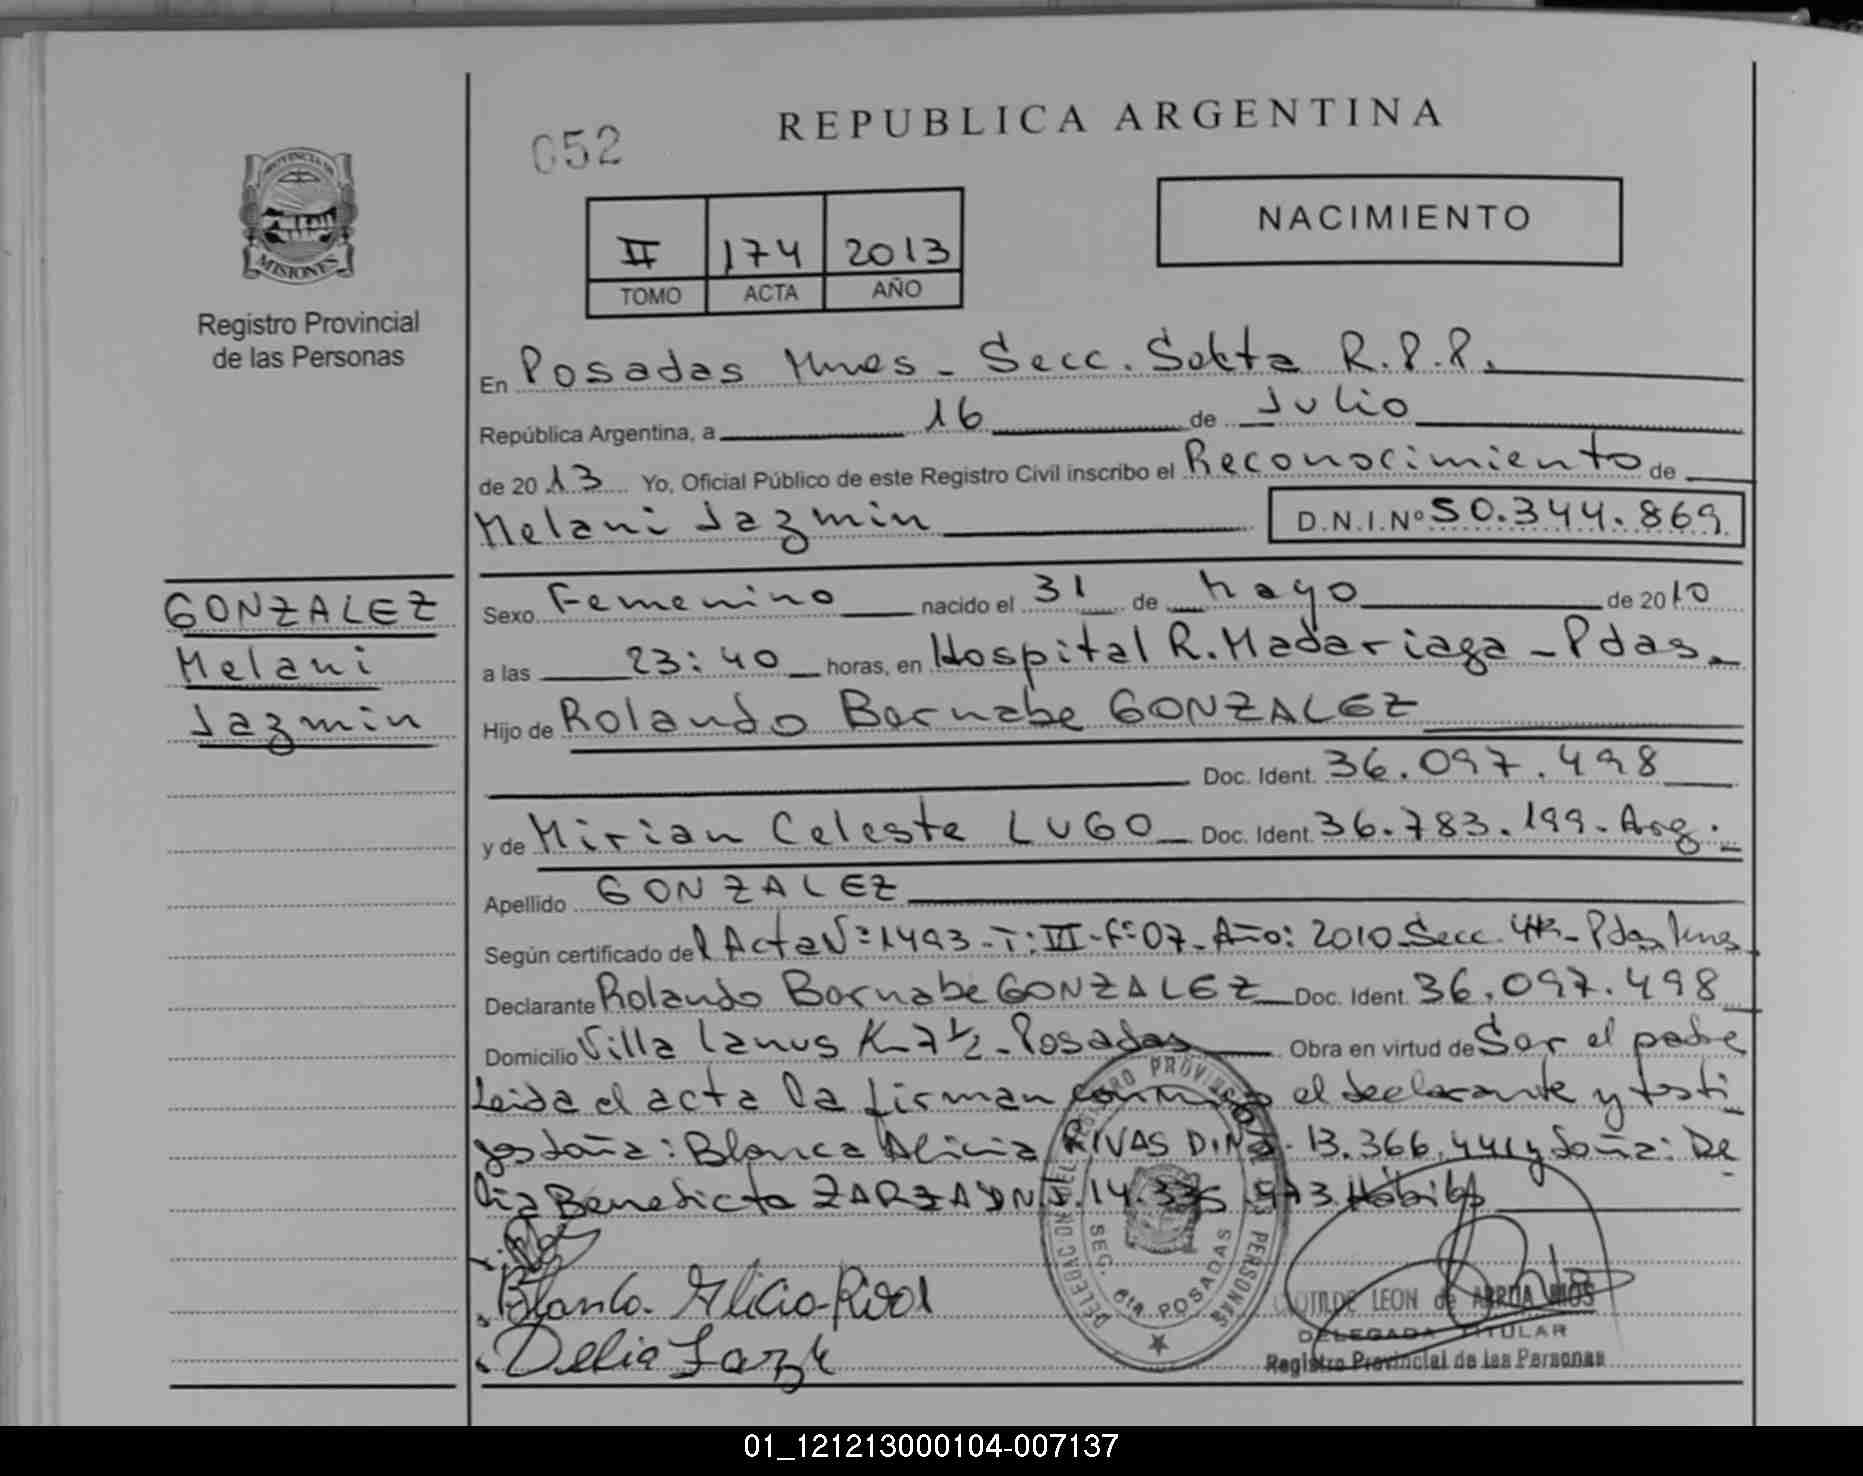 REPUBLICA ARGENTINA
052
NACIMIENTO
II 174 2013
TOMO ACTA AÑO
PROVINCIA DE
MISIONES
Registro Provincial
de las Personas
En Posadas Mnes - Secc. Sexta R.P.P.
República Argentina, a 16 de Julio
de 2013 Yo, Oficial Público de este Registro Civil inscribo el Reconocimiento de
Melani Jazmin D.N.I.Nº 50.344.869
GONZALEZ
Melani
Jazmin
Sexo Femenino nacido el 31 de Mayo de 2010
a las 23:40 horas, en Hospital R. Madariaga - Pdas.
Hijo de Rolando Bernabe GONZALEZ
Doc. Ident. 36.097.498
y de Mirian Celeste LUGO Doc. Ident. 36.783.199. Arg.
Apellido GONZALEZ
Según certificado del Acta Nº 1493 - T: III - Fº 07 - Año: 2010 Secc. 4ta - Pdas Mnes
Declarante Rolando Bernabe GONZALEZ Doc. Ident. 36.097.498
Domicilio Villa Lanus K-7½ - Posadas Obra en virtud de Ser el padre
Leida el acta la firman conmigo el declarante y testi
gos doña: Blanca Alicia RIVAS D.N.I. 13.366.441 y doña: De
lia Benedicta ZARZA DNI. 14.335 973 Habiles
Blanca Alicia Rivas
Delia Zarza
DELEGACION DEL REGISTRO PROVINCIAL DE LAS PERSONAS
SEC. 6ta POSADAS
CLOTILDE LEON de ARRUA RIOS
DELEGADA TITULAR
Registro Provincial de las Personas
01_121213000104-007137